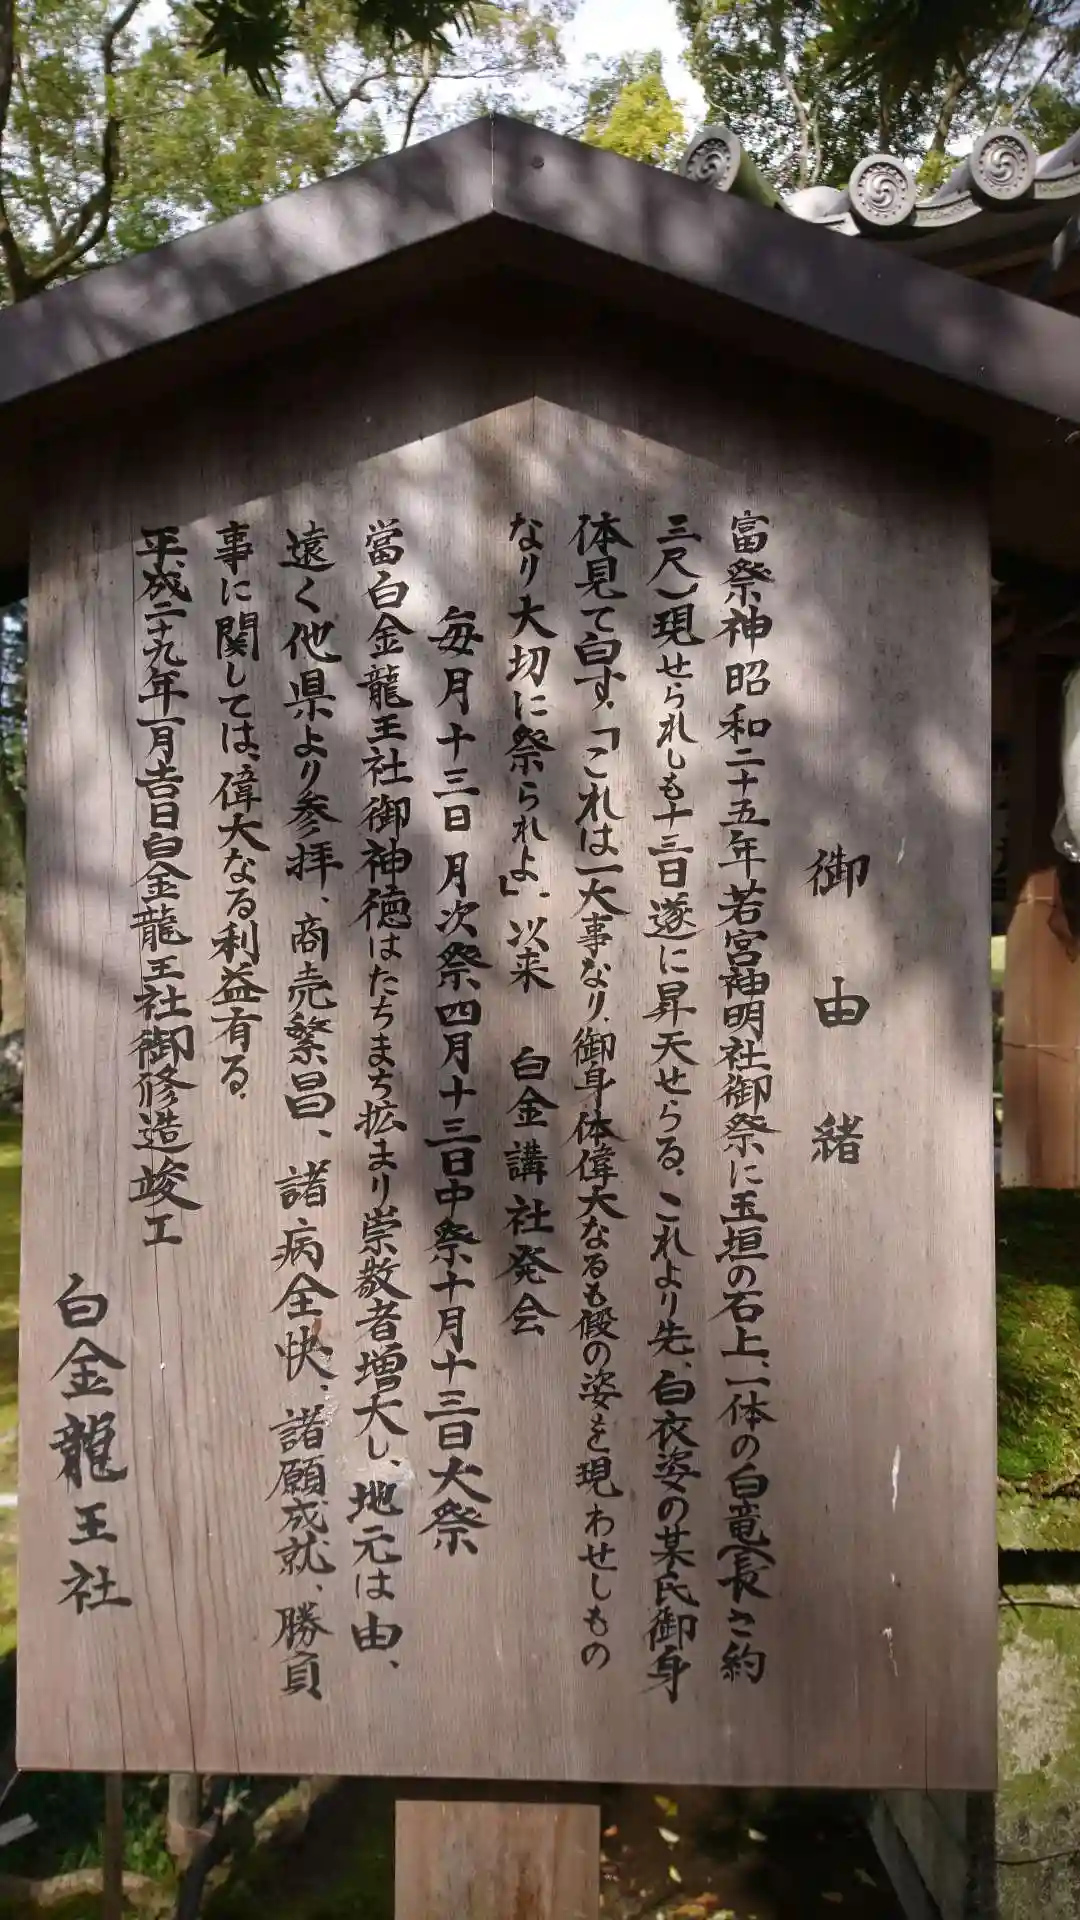 御由緒
富祭神昭和二十五年若宮神明社御祭に玉垣の石上、一体の白竜(長さ約
三尺)現せられしも十三日遂に昇天せらる。これより先、白衣姿の某氏御身
体見て白す、「これは一大事なり、御身体偉大なるも假の姿を現わせしもの
なり大切に祭られよ」。以来 白金講社発会
毎月十三日 月次祭四月十三日中祭十月十三日大祭
當白金龍王社御神徳はたちまち拡まり崇敬者増大し、地元は由、
遠く他県より参拝、商売繁昌、諸病全快、諸願成就、勝負
事に関しては、偉大なる利益有る。
平成二十九年一月吉日白金龍王社御修造竣工
白金龍王社